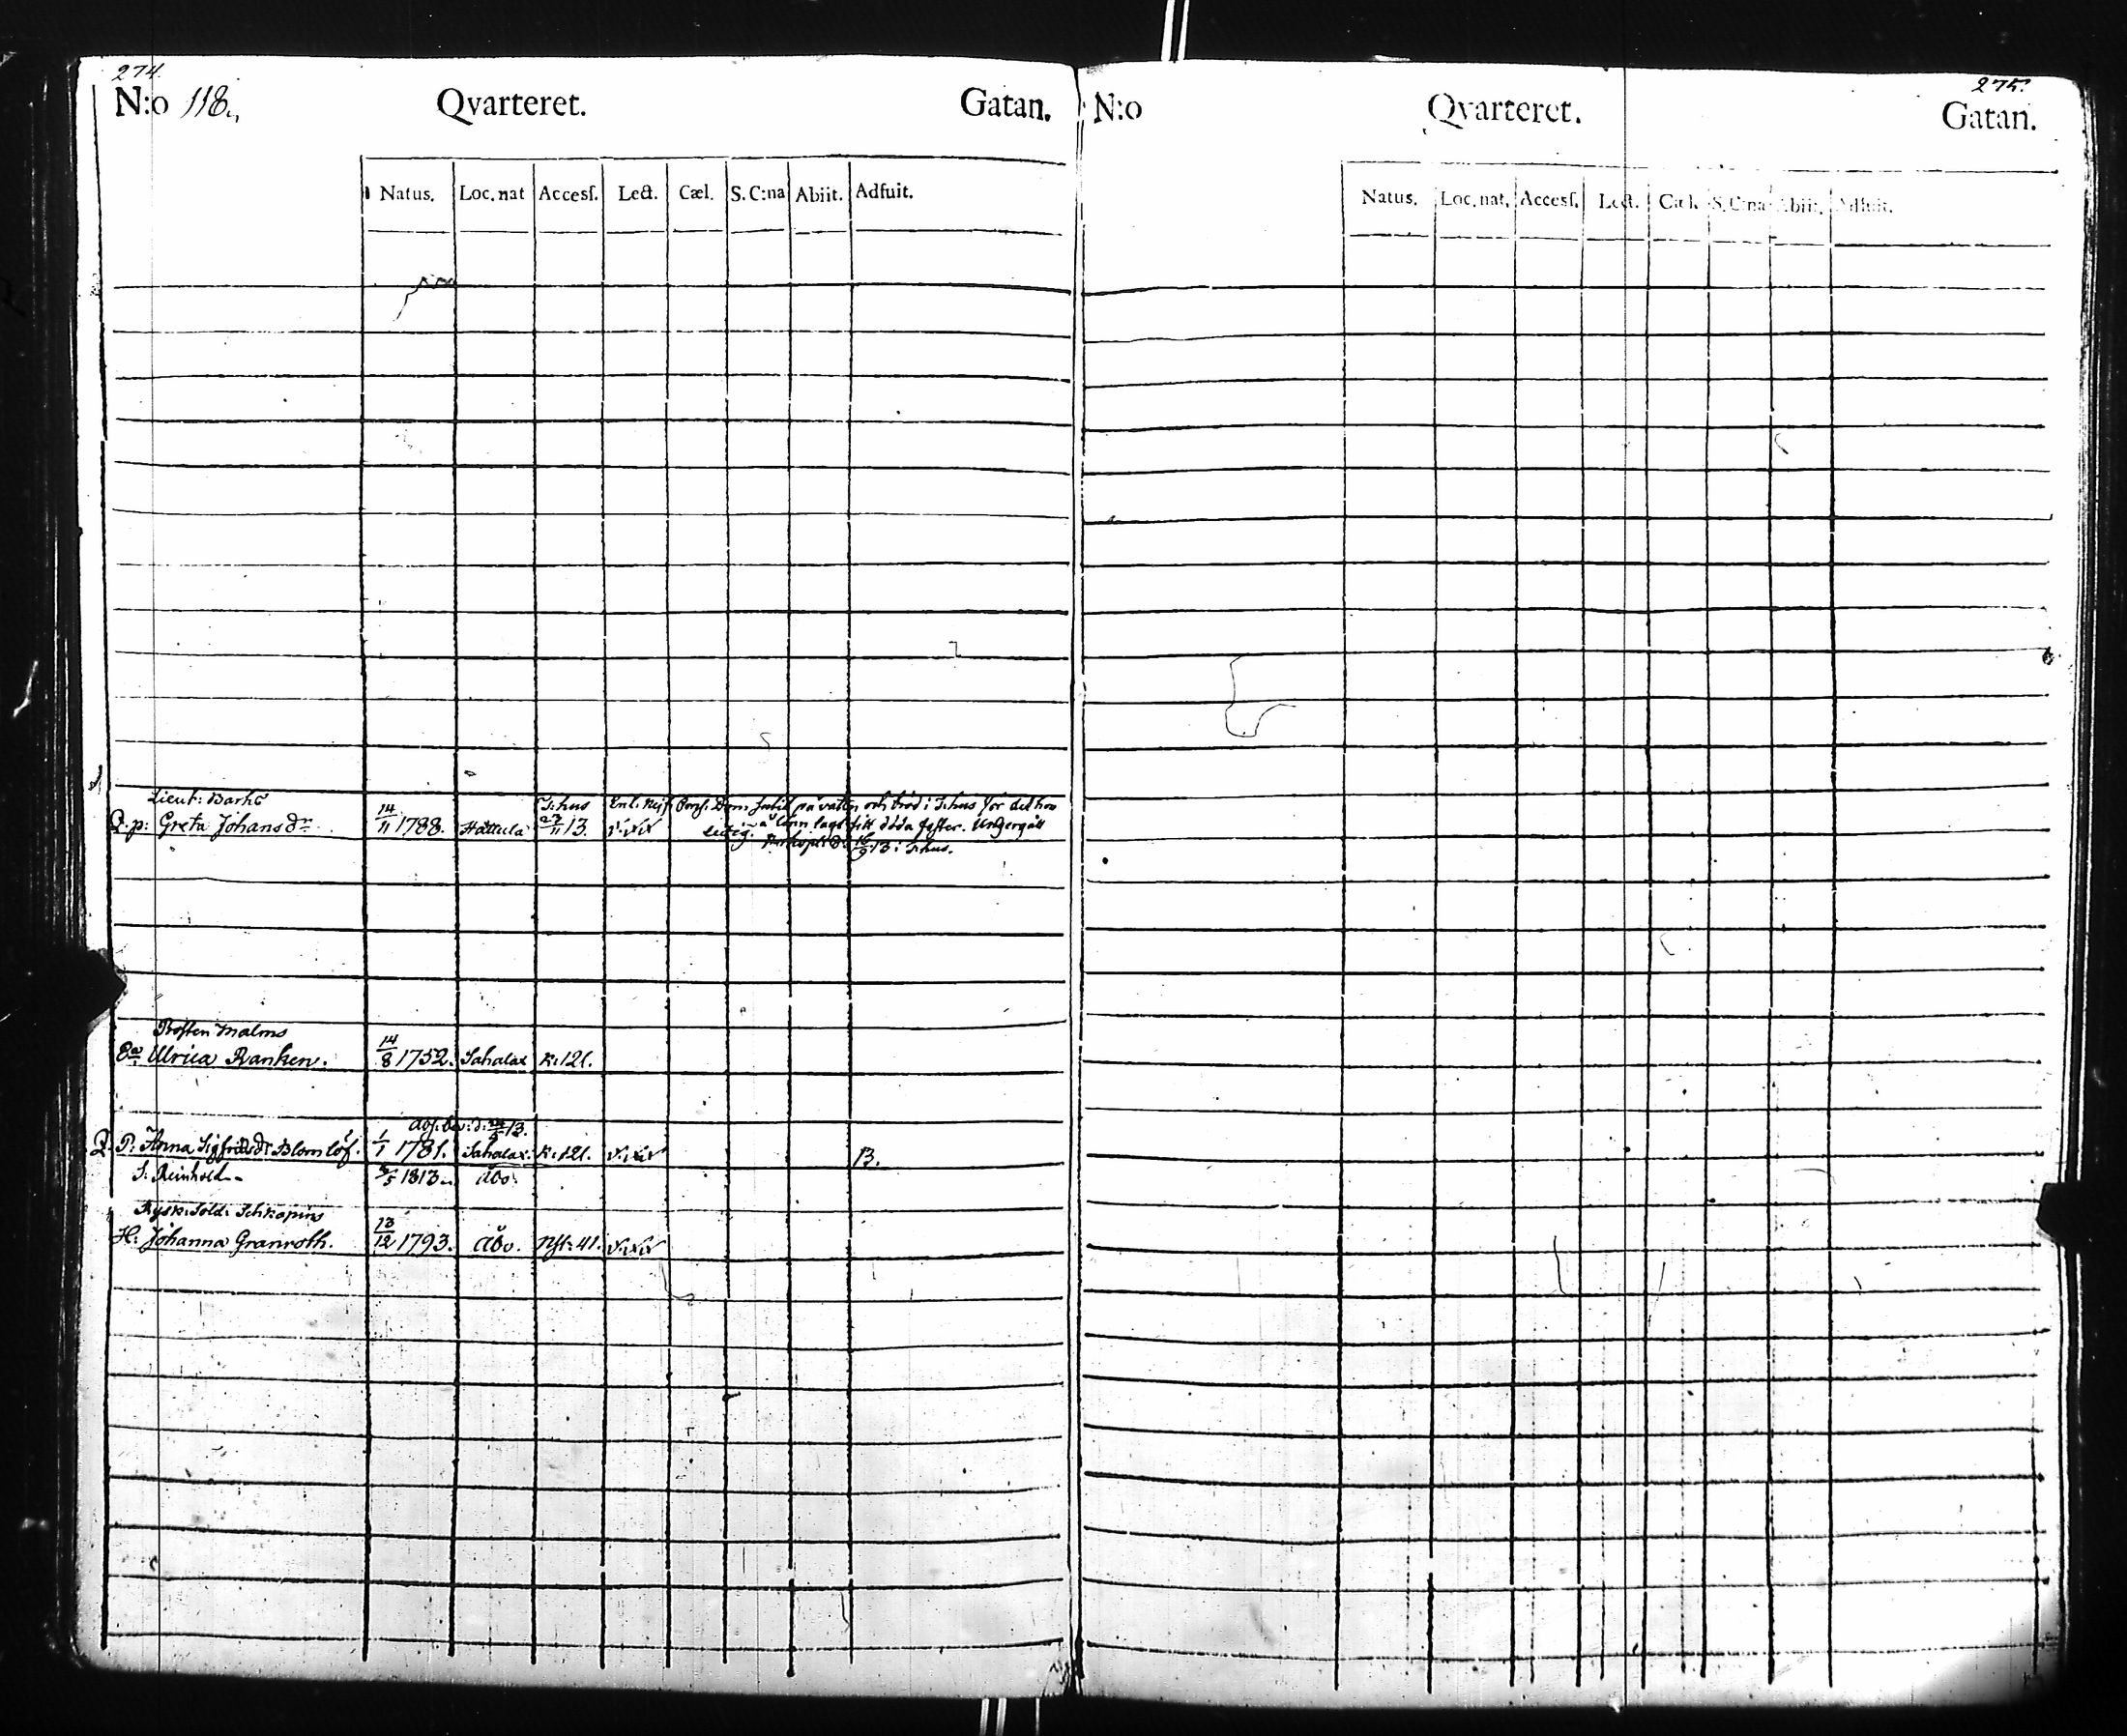 274.
N:o 118. Qvarteret. Gatan.
Natus. Loc. nat Accesſ. Lect. Cæl. S. C:na Abiit. Adfuit.
Lieut: Barks
Q. p: Greta Johans dr 14/11 1788. Hattula S:hus 27/11 13.
på vatten och bröd i S:hus för det hon
å lönn lagt sitt döda foster. Undergått
i S:hus.
Prosten Malms
Ea Ulrica Ranken. 14/8 1752. Sahalax K: 121.
Q. P: Anna Sigfrids dr Blomlöf. 1/1 1781. Sahalax. K: 121. B.
S: Reinhold 1813. Åbo
Rysk: Sold: Schkopins
H. Johanna Granroth. 13/12 1793. Åbo. Nst: 41.
275.
N:o Qvarteret. Gatan.
Natus. Loc. nat. Accesſ. Lect. Cæl. S. C:na Abiit. Adfuit.